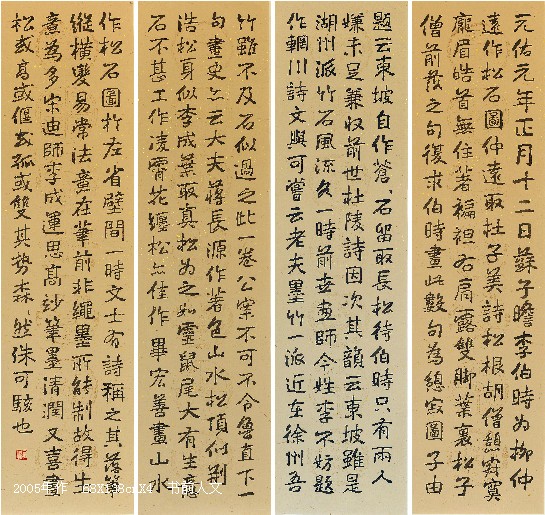 元佑元年正月十二日蘇子瞻李伯時為柳仲
遠作松石圖仲遠取杜子美詩松根胡僧憩寂寞
龐眉皓首無住著褊袒右肩露雙腳葉裏松子
僧前落之句復求伯時畫此數句為憩寂圖子由
題云東坡自作蒼石留取長松待伯時只有兩人
嫌未足兼收前世杜陵詩因次其韻云東坡雖是
湖州派竹石風流各一時前世畫師今姓李不妨題
作輞川詩文與可嘗云老夫墨竹一派近在徐州吾
竹雖不及石似過之此一卷公案不可不令魯直下一
句畫史亦云大夫蔣長源作著色山水松頂似荊
浩松身似李成葉取真松為之如靈鼠尾大有生意
石不甚工作凌霄花纏松亦佳作畢宏善畫山水
作松石圖於左省壁間一時文士有詩稱之其落筆
縱橫變易常法意在筆前非繩墨所能制故得生
意為多宋迪師李成運思高妙筆墨清潤又喜畫
松或高或偃或孤或雙其勢森然殊可駭也
2005年作 68X138cmX4 书前人文